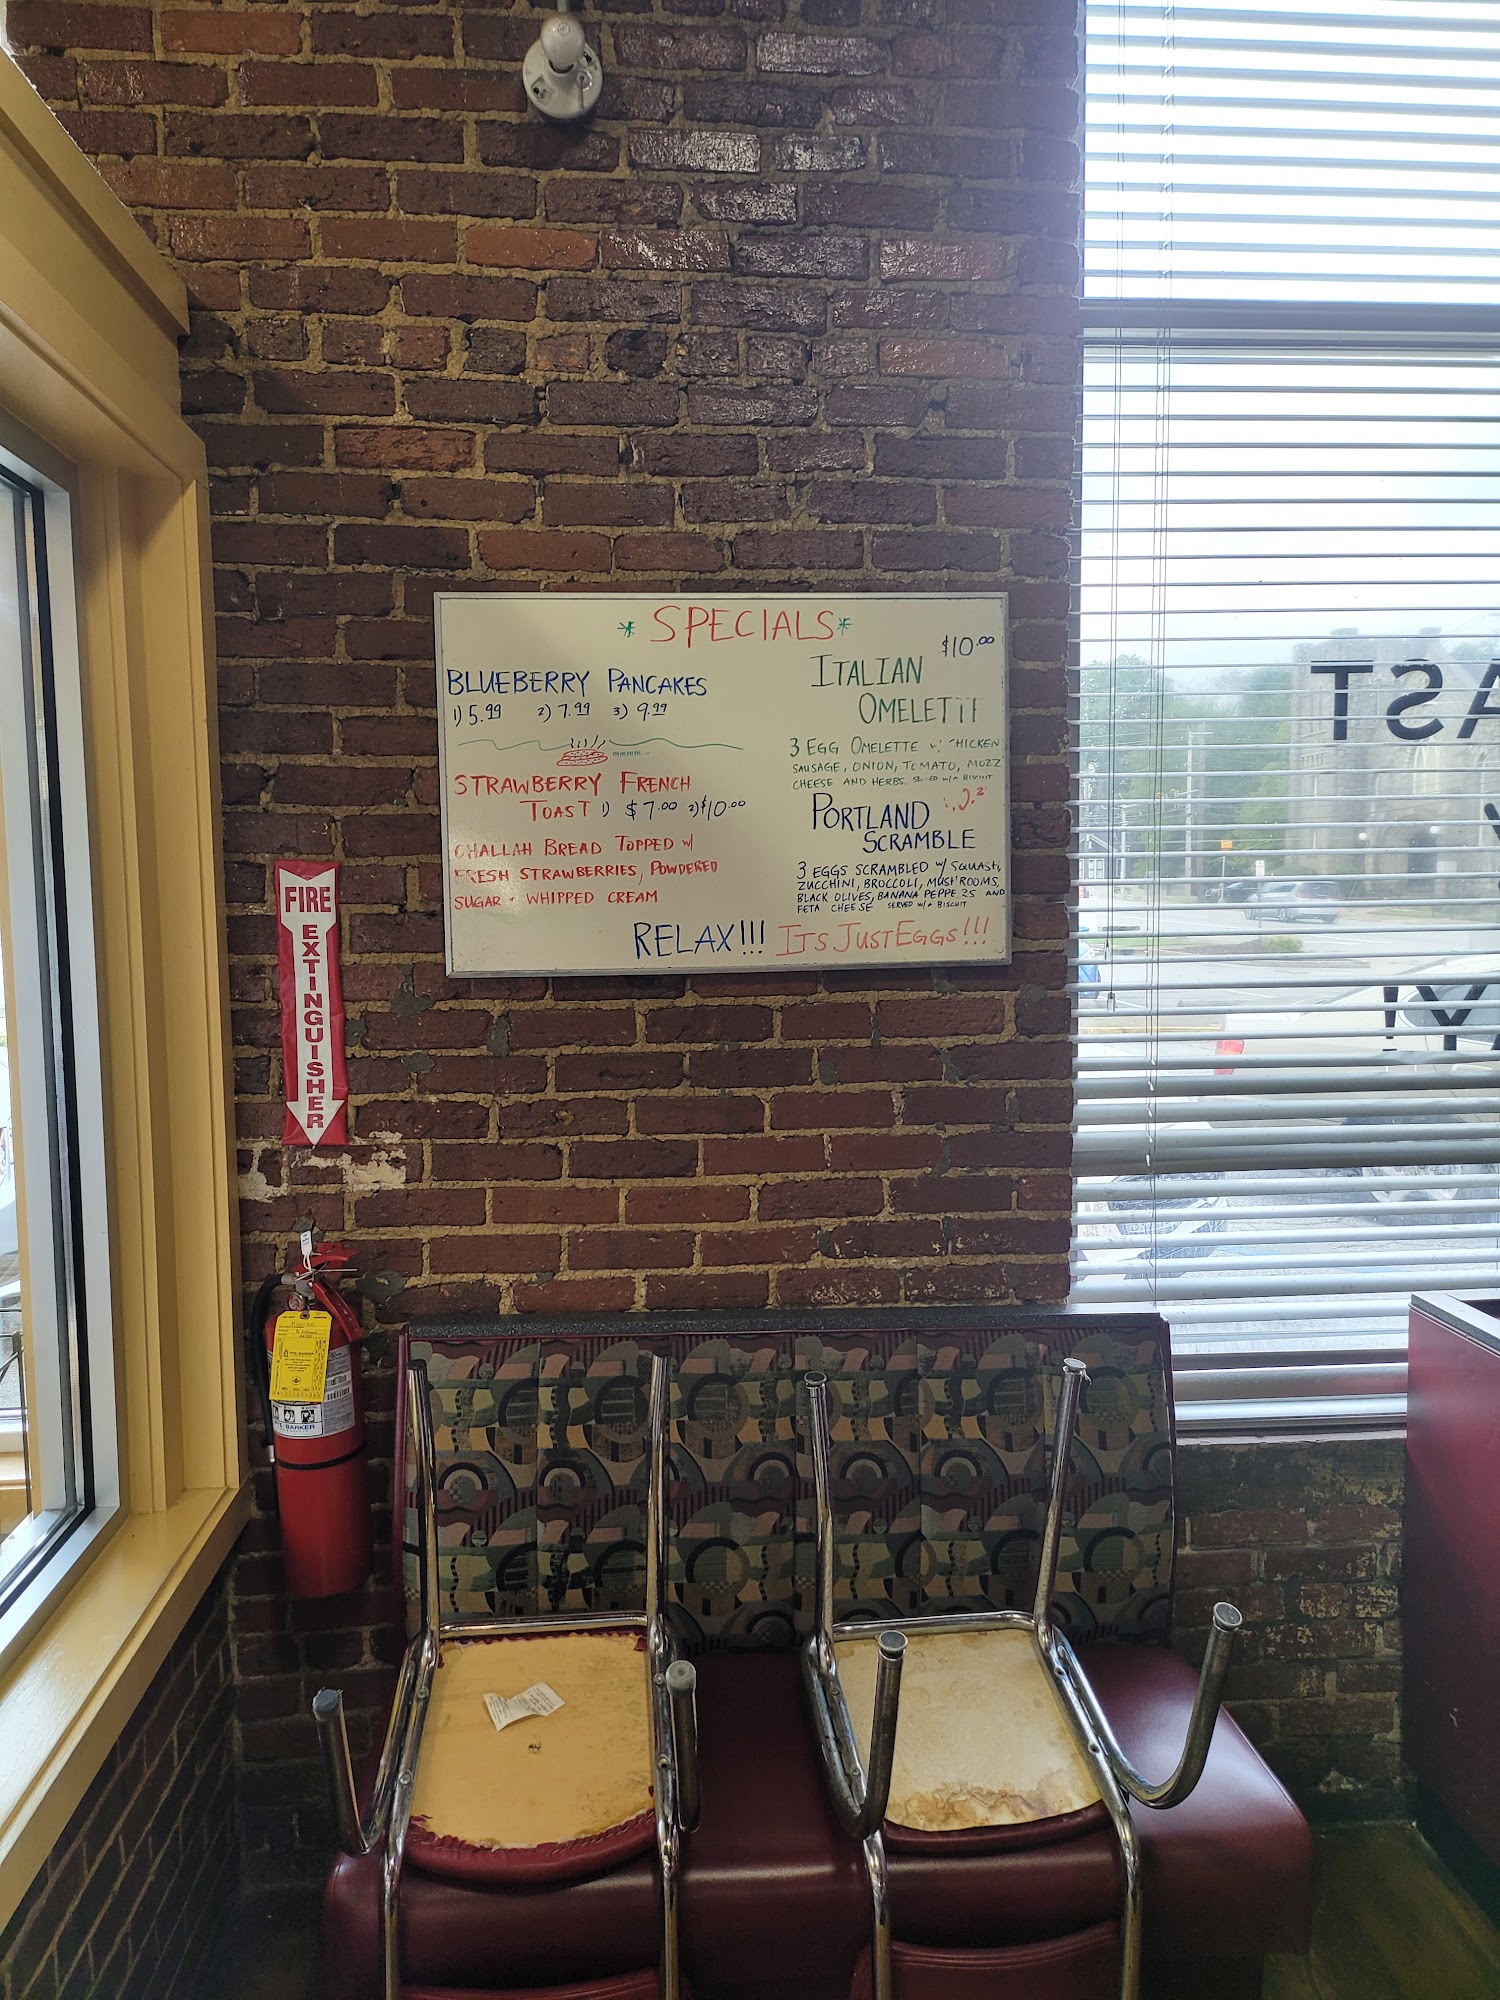 * SPECIALS *
BLUEBERRY PANCAKES
1) 5.99 2) 7.99 3) 9.99
mmmm...
STRAWBERRY FRENCH
TOAST 1) $7.00 2) $10.00
CHALLAH BREAD TOPPED W/
FRESH STRAWBERRIES, POWDERED
SUGAR + WHIPPED CREAM
$10.00
ITALIAN
OMELETTE
3 EGG OMELETTE W/ CHICKEN
SAUSAGE, ONION, TOMATO, MOZZ
CHEESE AND HERBS. SERVED W/A BISCUIT
PORTLAND
SCRAMBLE
3 EGGS SCRAMBLED W/ SQUASH,
ZUCCHINI, BROCCOLI, MUSHROOMS,
BLACK OLIVES, BANANA PEPPERS AND
FETA CHEESE SERVED W/A BISCUIT
RELAX!!! ITS JUST EGGS!!!
FIRE
EXTINGUISHER
AST
Y!